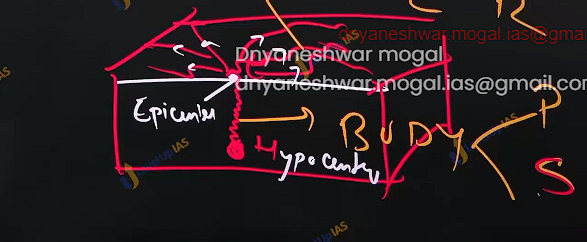 dnyaneshwar.mogal.ias@gma
Dnyaneshwar mogal
dnyaneshwar.mogal.ias@gmail.com
Epicenter
BUDY
P
Hypocenter
S
IAS
IAS
IAS
IAS